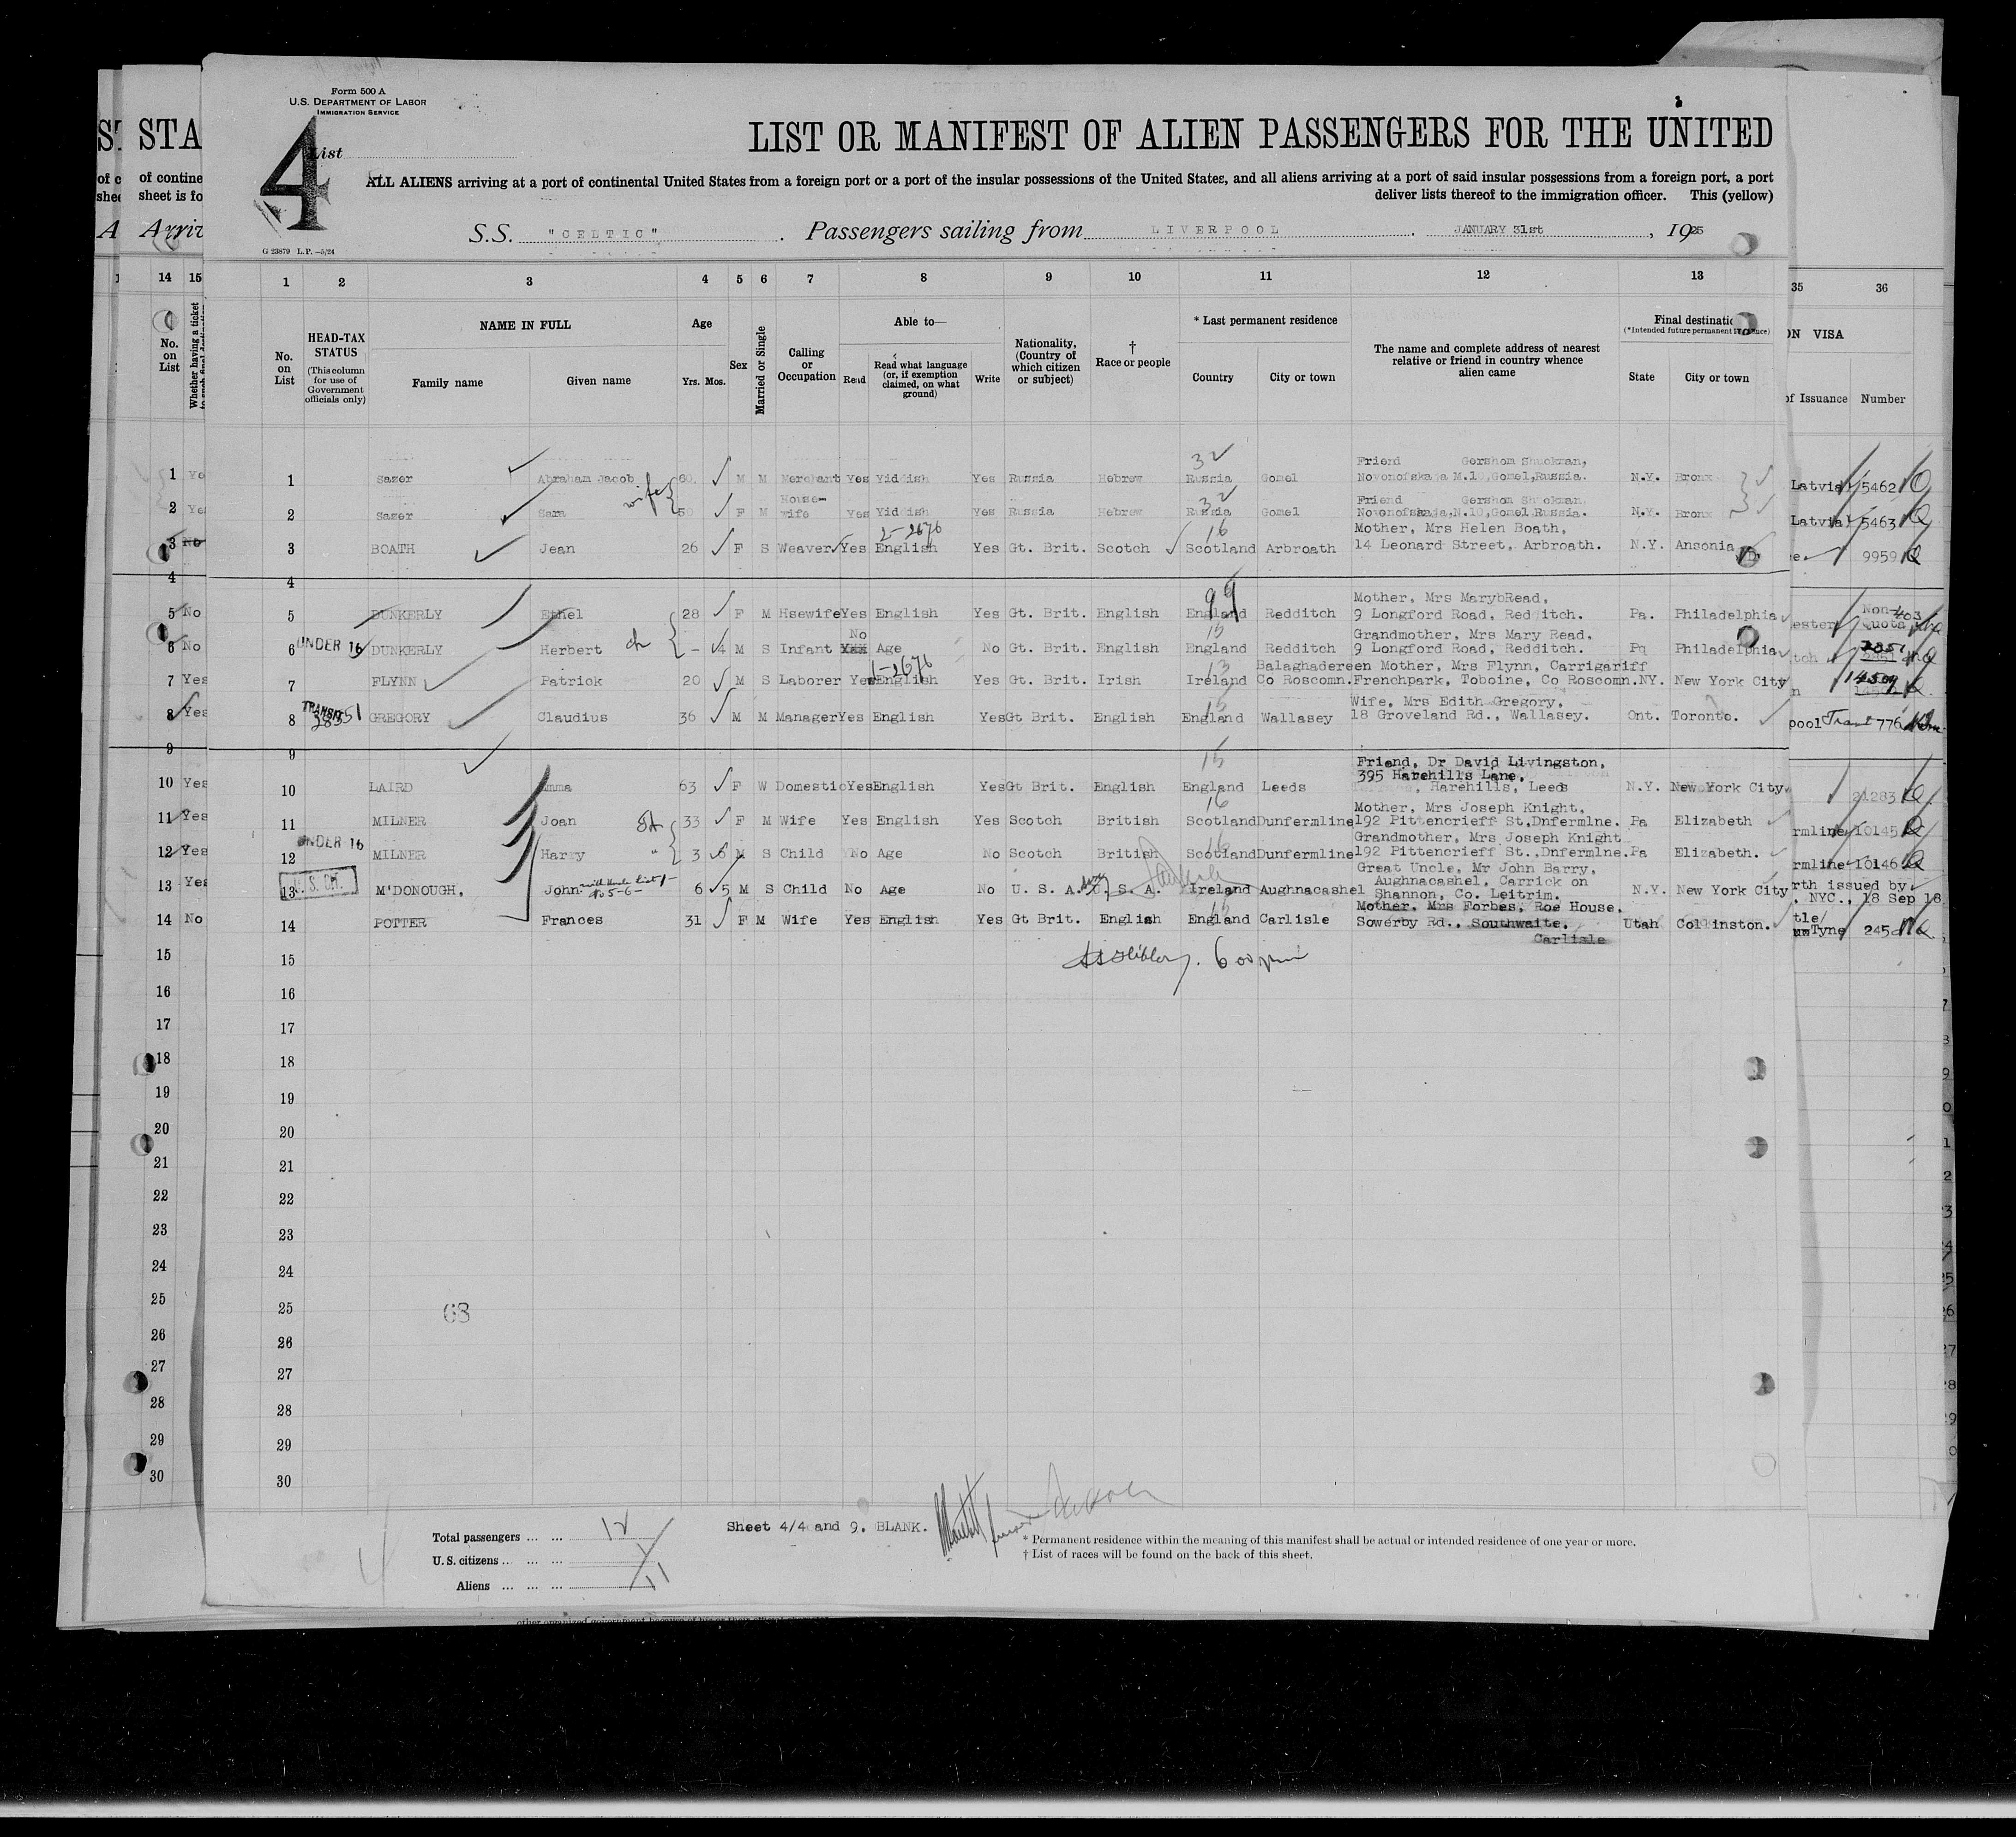 Form 500 A
U.S. DEPARTMENT OF LABOR
IMMIGRATION SERVICE
4
List
LIST OR MANIFEST OF ALIEN PASSENGERS FOR THE UNITED
ALL ALIENS arriving at a port of continental United States from a foreign port or a port of the insular possessions of the United States, and all aliens arriving at a port of said insular possessions from a foreign port, a port
deliver lists thereof to the immigration officer. This (yellow)
S.S. "CELTIC". Passengers sailing from LIVERPOOL. JANUARY 31st, 1925
G 23879 L.P. —5/24
ST STA
of c of contine
shee sheet is fo
A Arriv
14 15 1 2 3 4 5 6 7 8 9 10 11 12 13 35 36
No. on List
Whether having a ticket
No. on List
HEAD-TAX STATUS
(This column for use of Government officials only)
NAME IN FULL
Family name Given name
Age
Yrs. Mos.
Sex
Married or Single
Calling or Occupation
Able to—
Read
Read what language (or, if exemption claimed, on what ground)
Write
Nationality, (Country of which citizen or subject)
† Race or people
* Last permanent residence
Country City or town
The name and complete address of nearest relative or friend in country whence alien came
Final destinati
(*Intended future permanent
State City or town
ON VISA
of Issuance Number
32
Friend Gershom Shuckman,
1 Ye 1 Sazer Abraham Jacob 60 M M Merchant Yes Yiddish Yes Russia Hebrew Russia Gomel Novonofskaga M.10,Gomel,Russia. N.Y. Bronx Latvia 5462 Q
wife
House- 32 Friend Gershom Shuckman
2 Ye 2 Sazer Sara 50 F M wife Yes Yiddish Yes Russia Hebrew Russia Gomel Novonofskaga,N.10,Gomel Russia. N.Y. Bronx Latvia 5463 Q
2-2676 16 Mother, Mrs Helen Boath,
3 No 3 BOATH Jean 26 F S Weaver Yes English Yes Gt. Brit. Scotch Scotland Arbroath 14 Leonard Street, Arbroath. N.Y. Ansonia e. 9959 Q
4 4
99 Mother, Mrs MarybRead,
5 No 5 DUNKERLY Ethel 28 F M Hsewife Yes English Yes Gt. Brit. English England Redditch 9 Longford Road, Redditch. Pa. Philadelphia ester Non Quota 403
No 15 Grandmother, Mrs Mary Read,
6 No 6 UNDER 16 DUNKERLY Herbert ch - 4 M S Infant Age No Gt. Brit. English England Redditch 9 Longford Road, Redditch. Pa Philadelphia tch
1-2676 13 Balaghadereen Mother, Mrs Flynn, Carrigariff
7 Yes 7 FLYNN Patrick 20 M S Laborer Yes English Yes Gt. Brit. Irish Ireland Co Roscomn. Frenchpark, Toboine, Co Roscomn. NY. New York City n 14509
TRANSIT 38551 15 Wife, Mrs Edith Gregory,
8 Yes 8 GREGORY Claudius 36 M M Manager Yes English Yes Gt Brit. English England Wallasey 18 Groveland Rd., Wallasey. Ont. Toronto. pool Trans 776
9 9
15 Friend, Dr David Livingston,
395 Harehills Lane,
10 Yes 10 LAIRD Emma 63 F W Domestic Yes English Yes Gt Brit. English England Leeds , Harehills, Leeds N.Y. New York City 21283 Q
16 Mother, Mrs Joseph Knight,
11 Yes 11 MILNER Joan 33 F M Wife Yes English Yes Scotch British Scotland Dunfermline 192 Pittencrieff St,Dnfermlne. Pa Elizabeth rmline 10145 Q
UNDER 16 16 Grandmother, Mrs Joseph Knight
12 Yes 12 MILNER Harry " 3 6 M S Child No Age No Scotch British Scotland Dunfermline 192 Pittencrieff St.,Dnfermlne. Pa Elizabeth. rmline 10146 Q
Great Uncle, Mr John Barry,
13 Yes 13 U.S. CIT. M'DONOUGH, John with Uncle List 1- No 5-6- 6 5 M S Child No Age No U. S. A. U. S. A. Ireland Aughnacashel Aughnacashel, Carrick on N.Y. New York City rth issued by
Shannon, Co. Leitrim. , NYC., 18 Sep 18
15 Mother, Mrs Forbes, Roe House,
14 No 14 POTTER Frances 31 F M Wife Yes English Yes Gt Brit. English England Carlisle Sowerby Rd., Southwaite, Utah Collinston. tle/ Tyne 245
Carlisle
15 15
16 16
17 17
18 18
19 19
20 20
21 21
22 22
23 23
24 24
25 25
63
26 26
27 27
28 28
29 29
30 30
Sheet 4/4 and 9. BLANK.
Total passengers ... ... 12
U. S. citizens ... ... ... 1
Aliens ... ... ... 11
* Permanent residence within the meaning of this manifest shall be actual or intended residence of one year or more.
† List of races will be found on the back of this sheet.